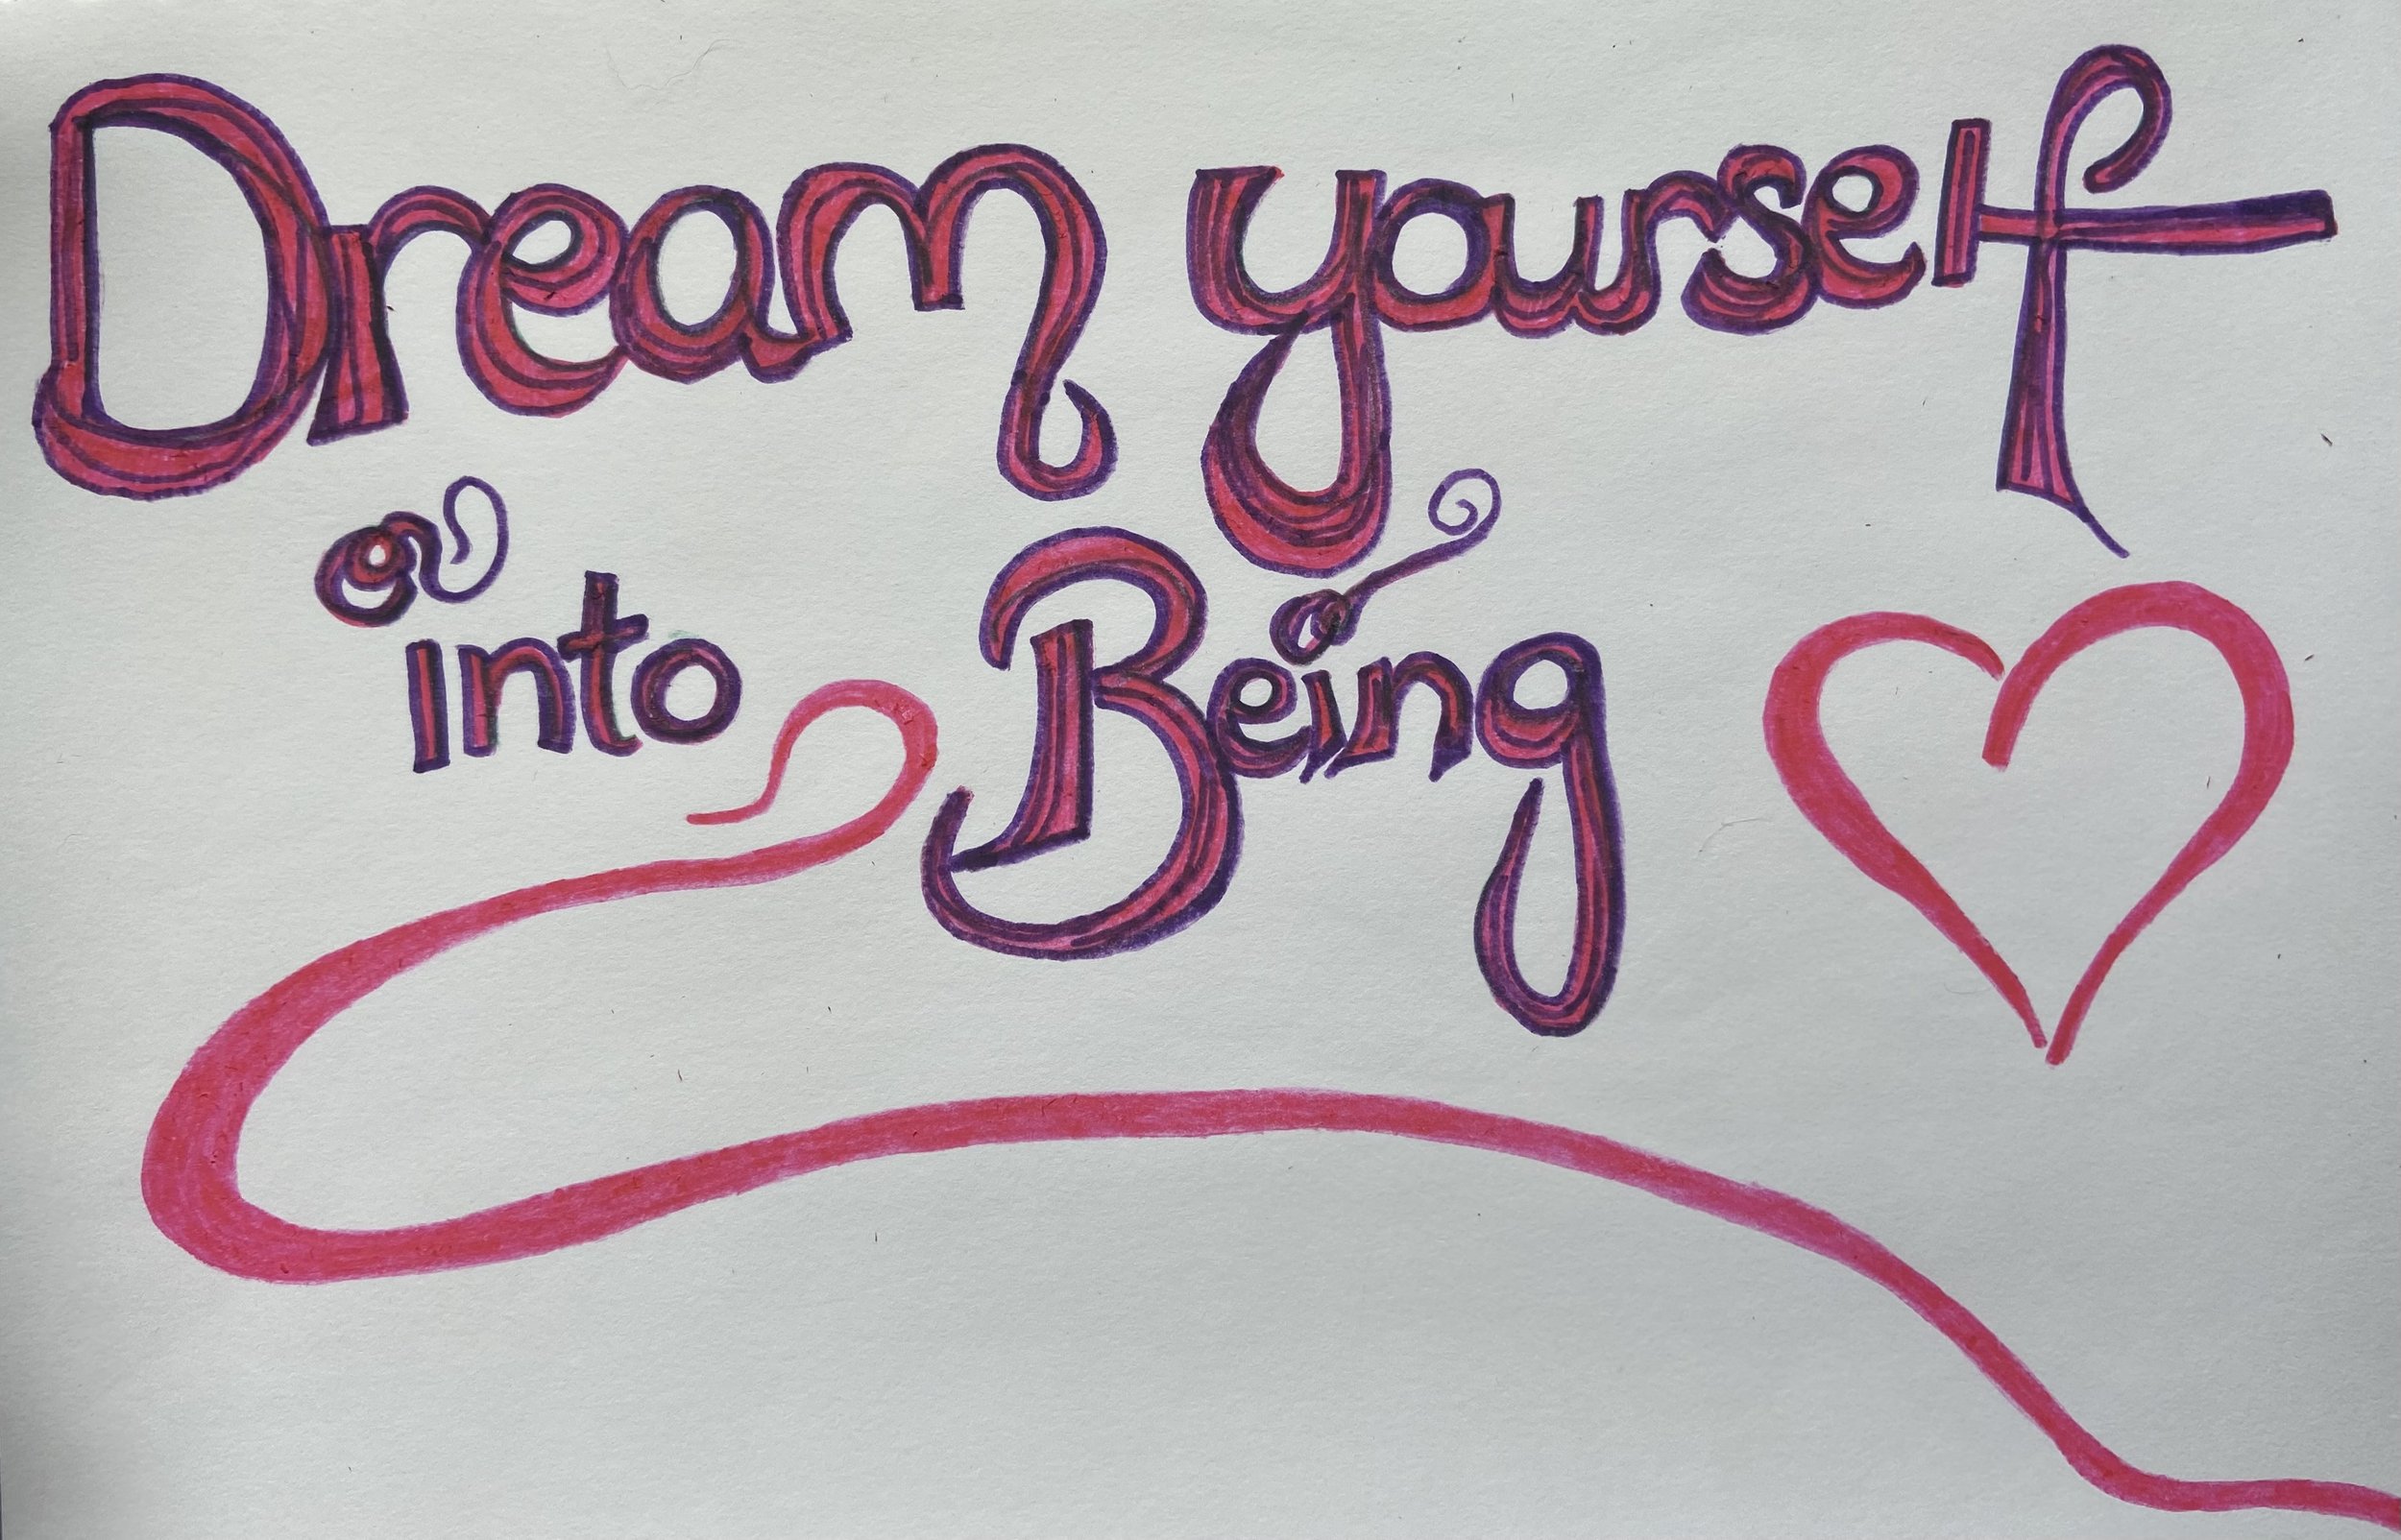 Dream yourself
into Being